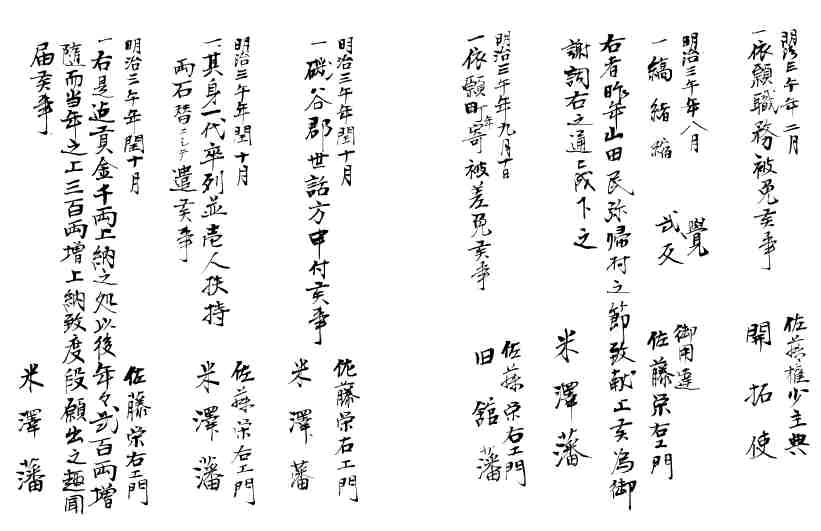 明治三午年二月
一依願職務被免候事
佐藤権少主典
開拓使
明治三午年八月
一縞緒縮 弐反
覺
御用達
佐藤栄右エ門
右者昨年山田民弥帰村之節致献上候為御
謝詞右之通被成下之
米澤藩
明治三午年九月十日
一依願町年寄被差免候事
佐藤栄右エ門
旧舘藩
明治三午年閏十月
一磯谷郡世話方申付候事
佐藤栄右エ門
米澤藩
明治三午年閏十月
一其身一代卒列並壱人扶持
両石替ニシテ遣候事
佐藤栄右エ門
米澤藩
明治三午年閏十月
一右是迠貢金千両上納之処以後年々弐百両増
随而当年之上三百両増上納致度段願出之趣聞
届候事
佐藤栄右エ門
米澤藩